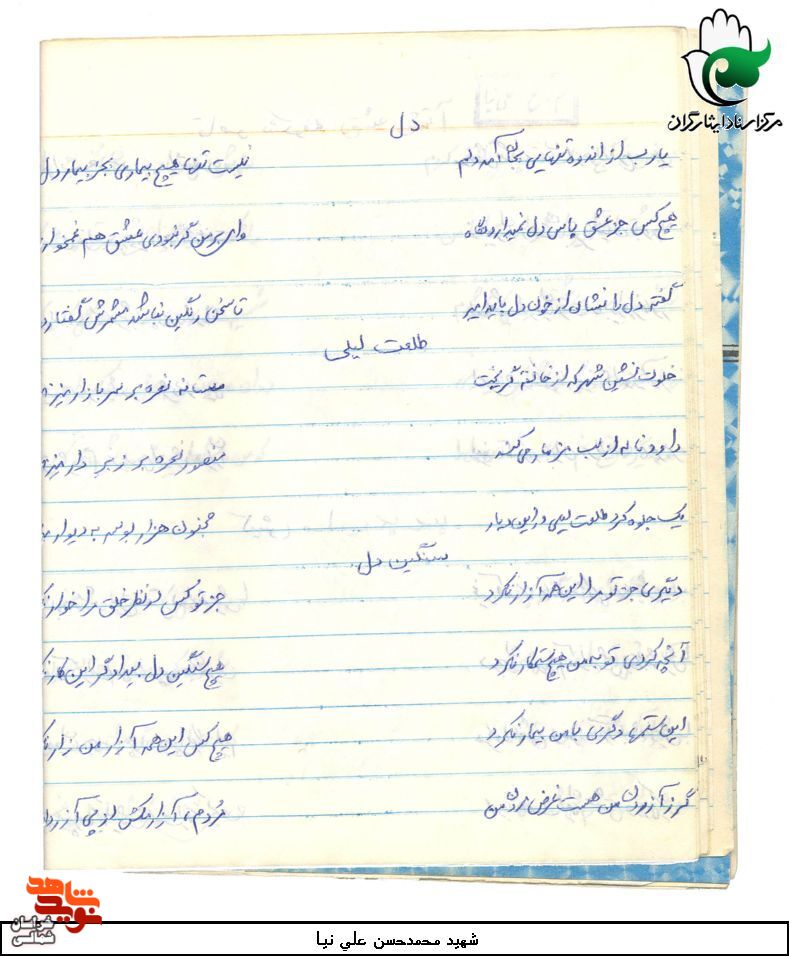 مرکز اسناد ایثارگران
دل
یارب از اندوه تنهایی بجان آمد دلم نیست تنها هیچ بیماری بجز بیمار دل
هیچ کس جز عشق پاس دل نمیدارد نگاه وای بر من گر نبودی عشق هم غمخوار
گفته دل را نشان از خون دل باید امیر تا سخن رنگین نباشد مشمرش گفتار د
طلعت لیلی
خلوت نشین شهر که از خانه گریخت مستانه نعره بر سر بازار میزند
داوود ناله از لب مزمار می کشد منصور نعره بر زبر دار میزند
یک جلوه کرد طلعت لیلی در این دیار مجنون هزار بوسه به دیوار
سنگین دل
دیگری جز تو مرا این همه آزار نکرد جز تو کس در نظر خلق مرا خوار
آنچه کردی تو به من هیچ ستمکار نکرد هیچ سنگین دل بیدادگر این کار
این ستمها دگری با من بیمار نکرد هیچکس این همه آزار من زار
گر ز آزردن من هست غرض مردن من مردم، آزار مکش از پی آزردن
نوید شاهد
خراسان شمالی
شهید محمدحسن علي نیا